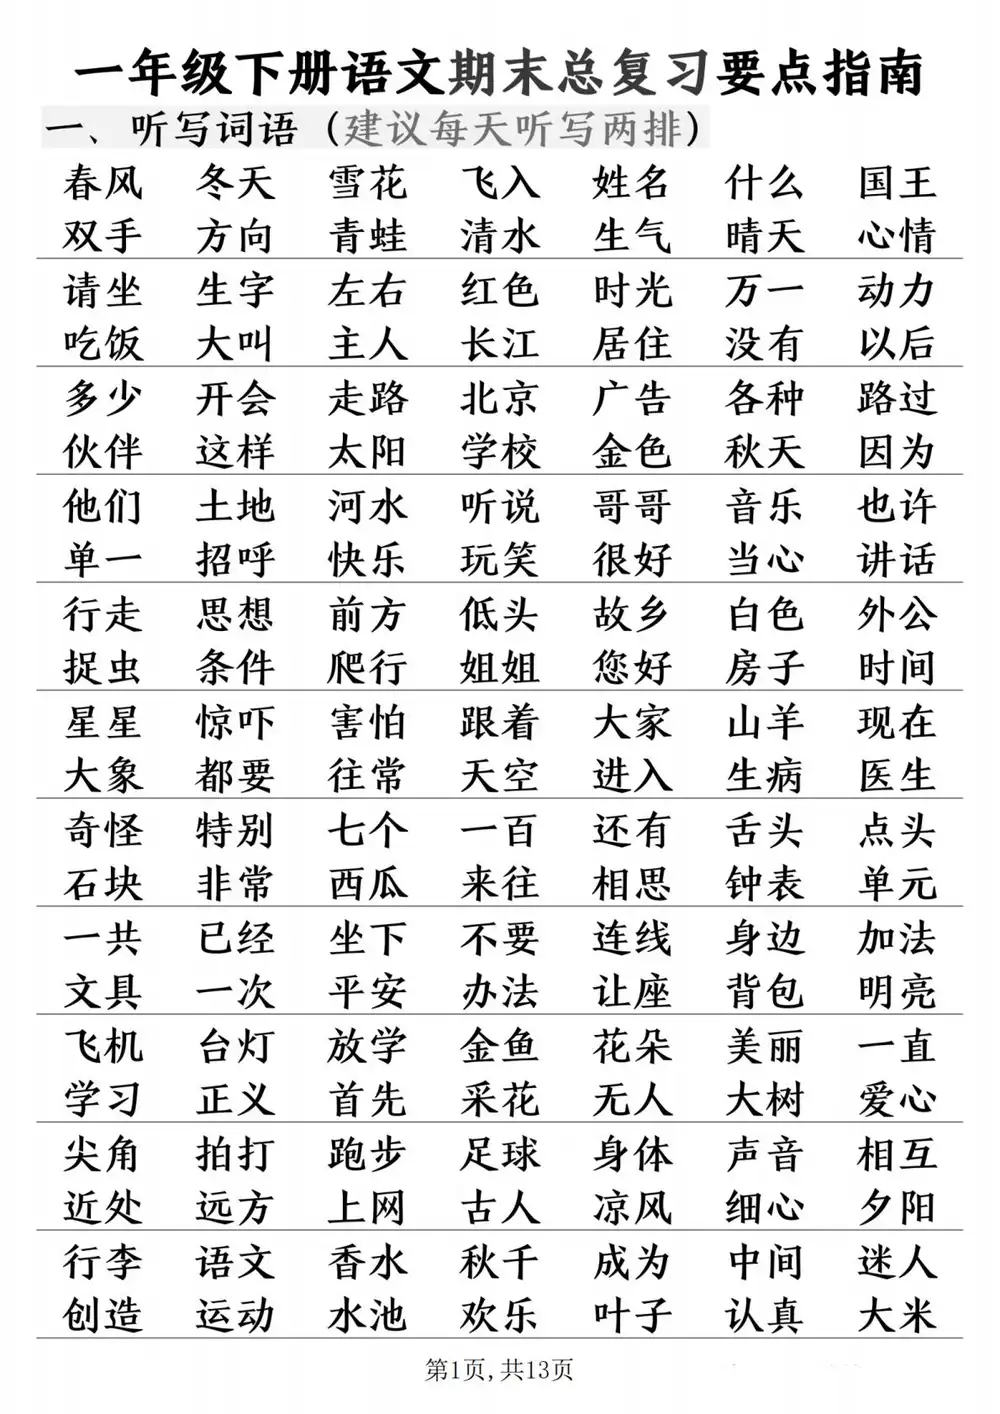 一年级下册语文期末总复习要点指南
一、听写词语（建议每天听写两排）
春风 冬天 雪花 飞入 姓名 什么 国王
双手 方向 青蛙 清水 生气 晴天 心情
请坐 生字 左右 红色 时光 万一 动力
吃饭 大叫 主人 长江 居住 没有 以后
多少 开会 走路 北京 广告 各种 路过
伙伴 这样 太阳 学校 金色 秋天 因为
他们 土地 河水 听说 哥哥 音乐 也许
单一 招呼 快乐 玩笑 很好 当心 讲话
行走 思想 前方 低头 故乡 白色 外公
捉虫 条件 爬行 姐姐 您好 房子 时间
星星 惊吓 害怕 跟着 大家 山羊 现在
大象 都要 往常 天空 进入 生病 医生
奇怪 特别 七个 一百 还有 舌头 点头
石块 非常 西瓜 来往 相思 钟表 单元
一共 已经 坐下 不要 连线 身边 加法
文具 一次 平安 办法 让座 背包 明亮
飞机 台灯 放学 金鱼 花朵 美丽 一直
学习 正义 首先 采花 无人 大树 爱心
尖角 拍打 跑步 足球 身体 声音 相互
近处 远方 上网 古人 凉风 细心 夕阳
行李 语文 香水 秋千 成为 中间 迷人
创造 运动 水池 欢乐 叶子 认真 大米
第1页,共13页